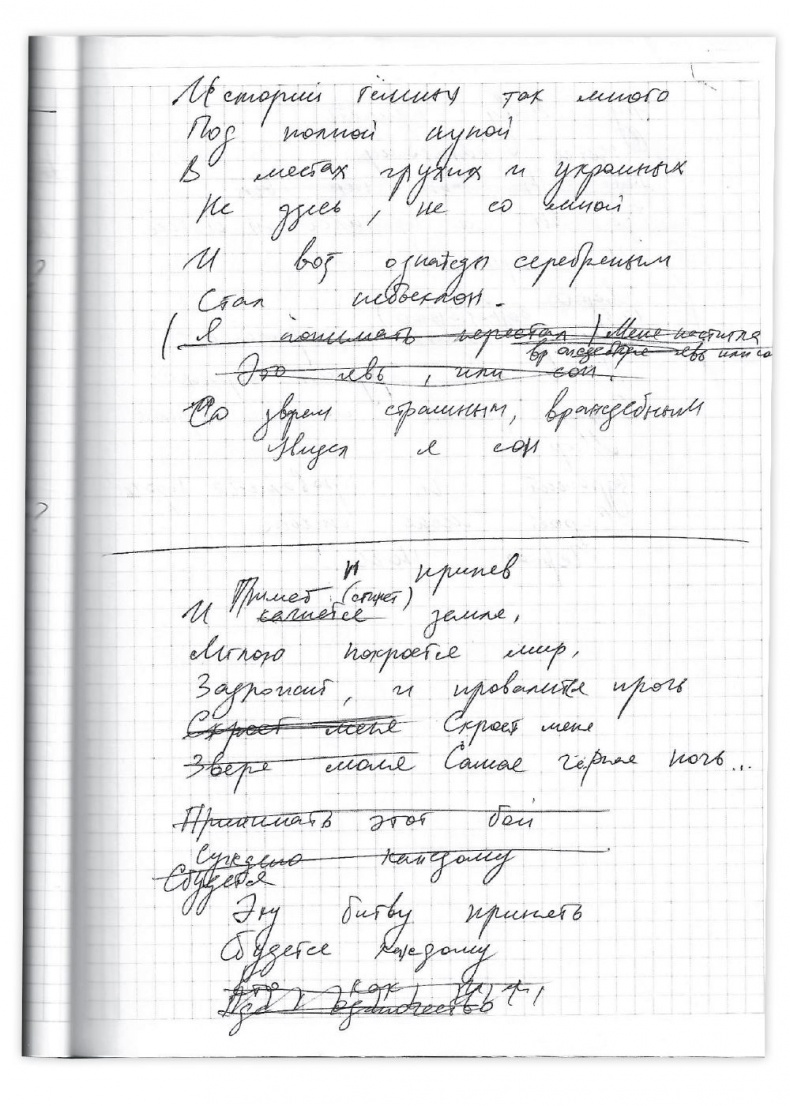 Историй тёмных так много
Под полной луной
В местах глухих и укромных
Не здесь, не со мной
И вот однажды серебреным
Стал небосклон.
(Я понимать перестал) Меня настигла
враждебная явь или со
Это явь, или сон.
Со зверем страшным, враждебным
Увидел я сон
припев
Примет (стирет)
И качнётся земля,
Мглою покроется мир,
Задрожит, и провалится прочь
Скроет меня Скроет меня
Зверя моля Самая чёрная ночь...
Принимать этот бой
Суждено каждому
Сбудется
Эту битву принять
Сбудется каждому
это как
одиночество